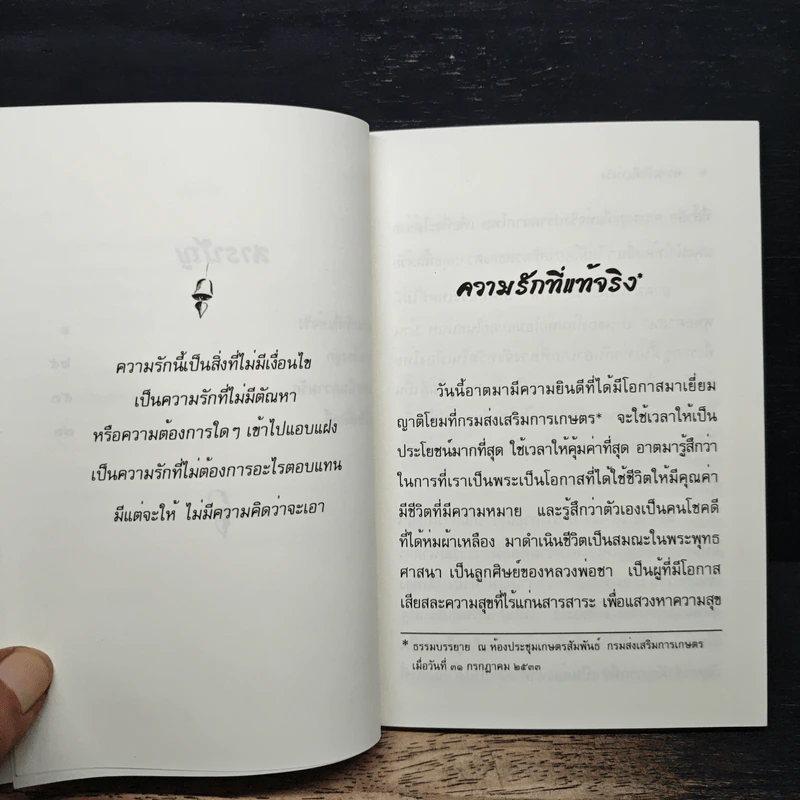 ความรักนี้เป็นสิ่งที่ไม่มีเงื่อนไข
เป็นความรักที่ไม่มีตัณหา
หรือความต้องการใดๆ เข้าไปแอบแฝง
เป็นความรักที่ไม่ต้องการอะไรตอบแทน
มีแต่จะให้ ไม่มีความคิดว่าจะเอา
ความรักที่แท้จริง*
วันนี้อาตมามีความยินดีที่ได้มีโอกาสมาเยี่ยม
ญาติโยมที่กรมส่งเสริมการเกษตร* จะใช้เวลาให้เป็น
ประโยชน์มากที่สุด ใช้เวลาให้คุ้มค่าที่สุด อาตมารู้สึกว่า
ในการที่เราเป็นพระเป็นโอกาสที่ได้ใช้ชีวิตให้มีคุณค่า
มีชีวิตที่มีความหมาย และรู้สึกว่าตัวเองเป็นคนโชคดี
ที่ได้ห่มผ้าเหลือง มาดำเนินชีวิตเป็นสมณะในพระพุทธ
ศาสนา เป็นลูกศิษย์ของหลวงพ่อชา เป็นผู้ที่มีโอกาส
เสียสละความสุขที่ไร้แก่นสารสาระ เพื่อแสวงหาความสุข
* ธรรมบรรยาย ณ ห้องประชุมเกษตรสัมพันธ์ กรมส่งเสริมการเกษตร
เมื่อวันที่ ๓๑ กรกฎาคม ๒๕๓๓